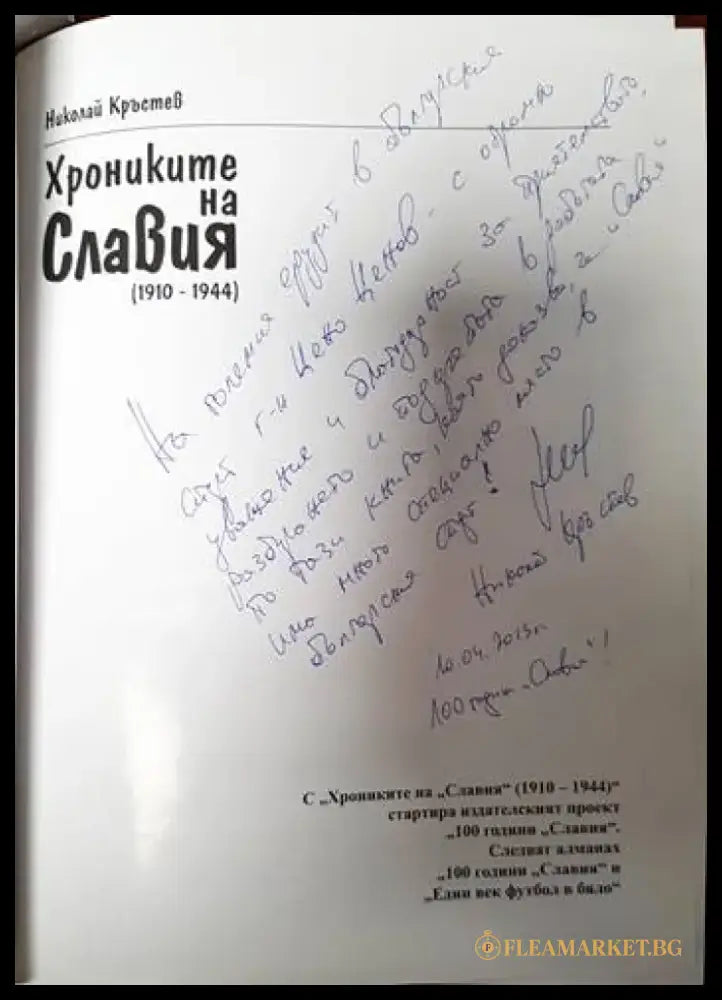 Николай Кръстев
Хрониките
на
Славия
(1910 - 1944)
На големия ерудит в български
спорт г-н Цено Ценов - с огромно
уважение и благодарност за приятелството,
разбирането и подкрепата в работата
по тази книга, която доказва, че „Славия“
има много специално място в
българския спорт!
Николай Кръстев
10.04.2013г.
100 години „Славия“!
С „Хрониките на „Славия“ (1910 – 1944)“
стартира издателският проект
„100 години „Славия“.
Следват алманах
„100 години „Славия“ и
„Един век футбол в бяло“
FLEAMARKET.BG